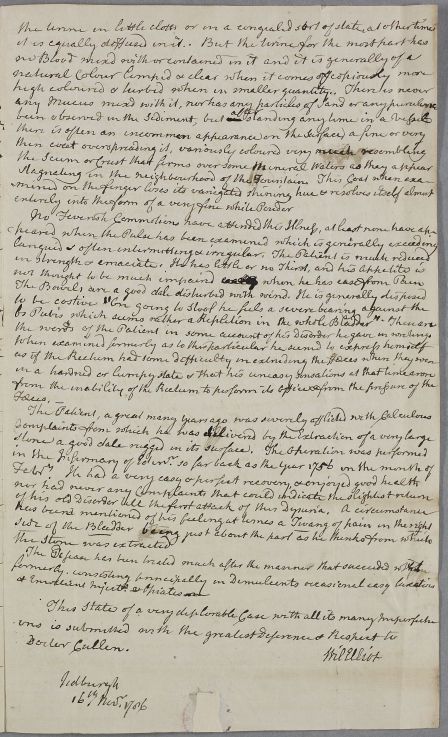 the Urine in little clots or in a congealed sort of state, at other times
it is equally diffused in it. But the Urine for the most part has
no Blood mixd with or contained in it and it is generally of a
natural Colour limped & clear when it comes of copiously more
high coloured & turbid when in smaller quantity. There is never
any Mucus mixd with it, nor has any particles of Sand or any purulence
been observed in the Sediment, but after standing any time in a Vessel
there is often an uncommon appearance on the Surface, a fine or very
thin coat overspreading it, variously coloured very much resembling
the Scum or Crust that forms over some Mineral Waters as they appear
Stagnating in the neighbourhood of the Fountain. This Coat when exa=
mined on the finger loses its varigated shining hue & resolves itself almost
entirely into the form of a very fine White Powder
No Feverish Commotion have attended this Illness, at least none have ap=
peared when the Pulse has been examined which is generally exceeding
languid & often intermitting & irregular. The Patient is much reduced
in Strength & emaciate. He has little or no Thirst, and his Appetite is
not thought to be much impaired when he has ease from Pain
The Bowels are a good dale disturbed with wind. He is generally disposed
to be costive "On going to Stool he feels a severe bearing against the
Os Pubis which seems rather a Repletion in the whole Bladder". These are
the words of the Patient in some account of his disorder he gave in writing
When examined formerly as to this particular he seemd to express himself
as if the Rectum had some difficulty in extruding the fæces when they were
in a hardned or lumpy state & that his uneasy sensations at that time arose
from the inability of the Rectum to perform its office from the pressure of the
Fæces.
The Patient, a great many years ago was severely afflicted with Calculous
Complaints from which he was delivered by the extraction of a very large
Stone a good dale rugged in its surface. The Operation was performed
in the Infirmary of Edinr. so far back as the Year 1756 in the month of
Febry. He had a very easy & perfect recovery & enjoyed good health
nor had never any Complaints that could indicate the slightest return
of his old Disorder till the first attack of this Dysuria. A circumstance
has being mentioned of his feeling at times a Twang of pain in the right
side of the Bladder being just about the part as he thinks from which
the Stone was extracted
The Disease has been treated much after the manner that succeeded with it
formerly, consisting principally in Demulcents occasional easy laxatives
& Emollient Injects. & Opiates
This State of a very deplorable Case with all its many Imperfecti=
ons is submitted with the greatest Deference & Respect to
Doctor Cullen.
Wil Elliot
Jedburgh
16th Novr. 1786